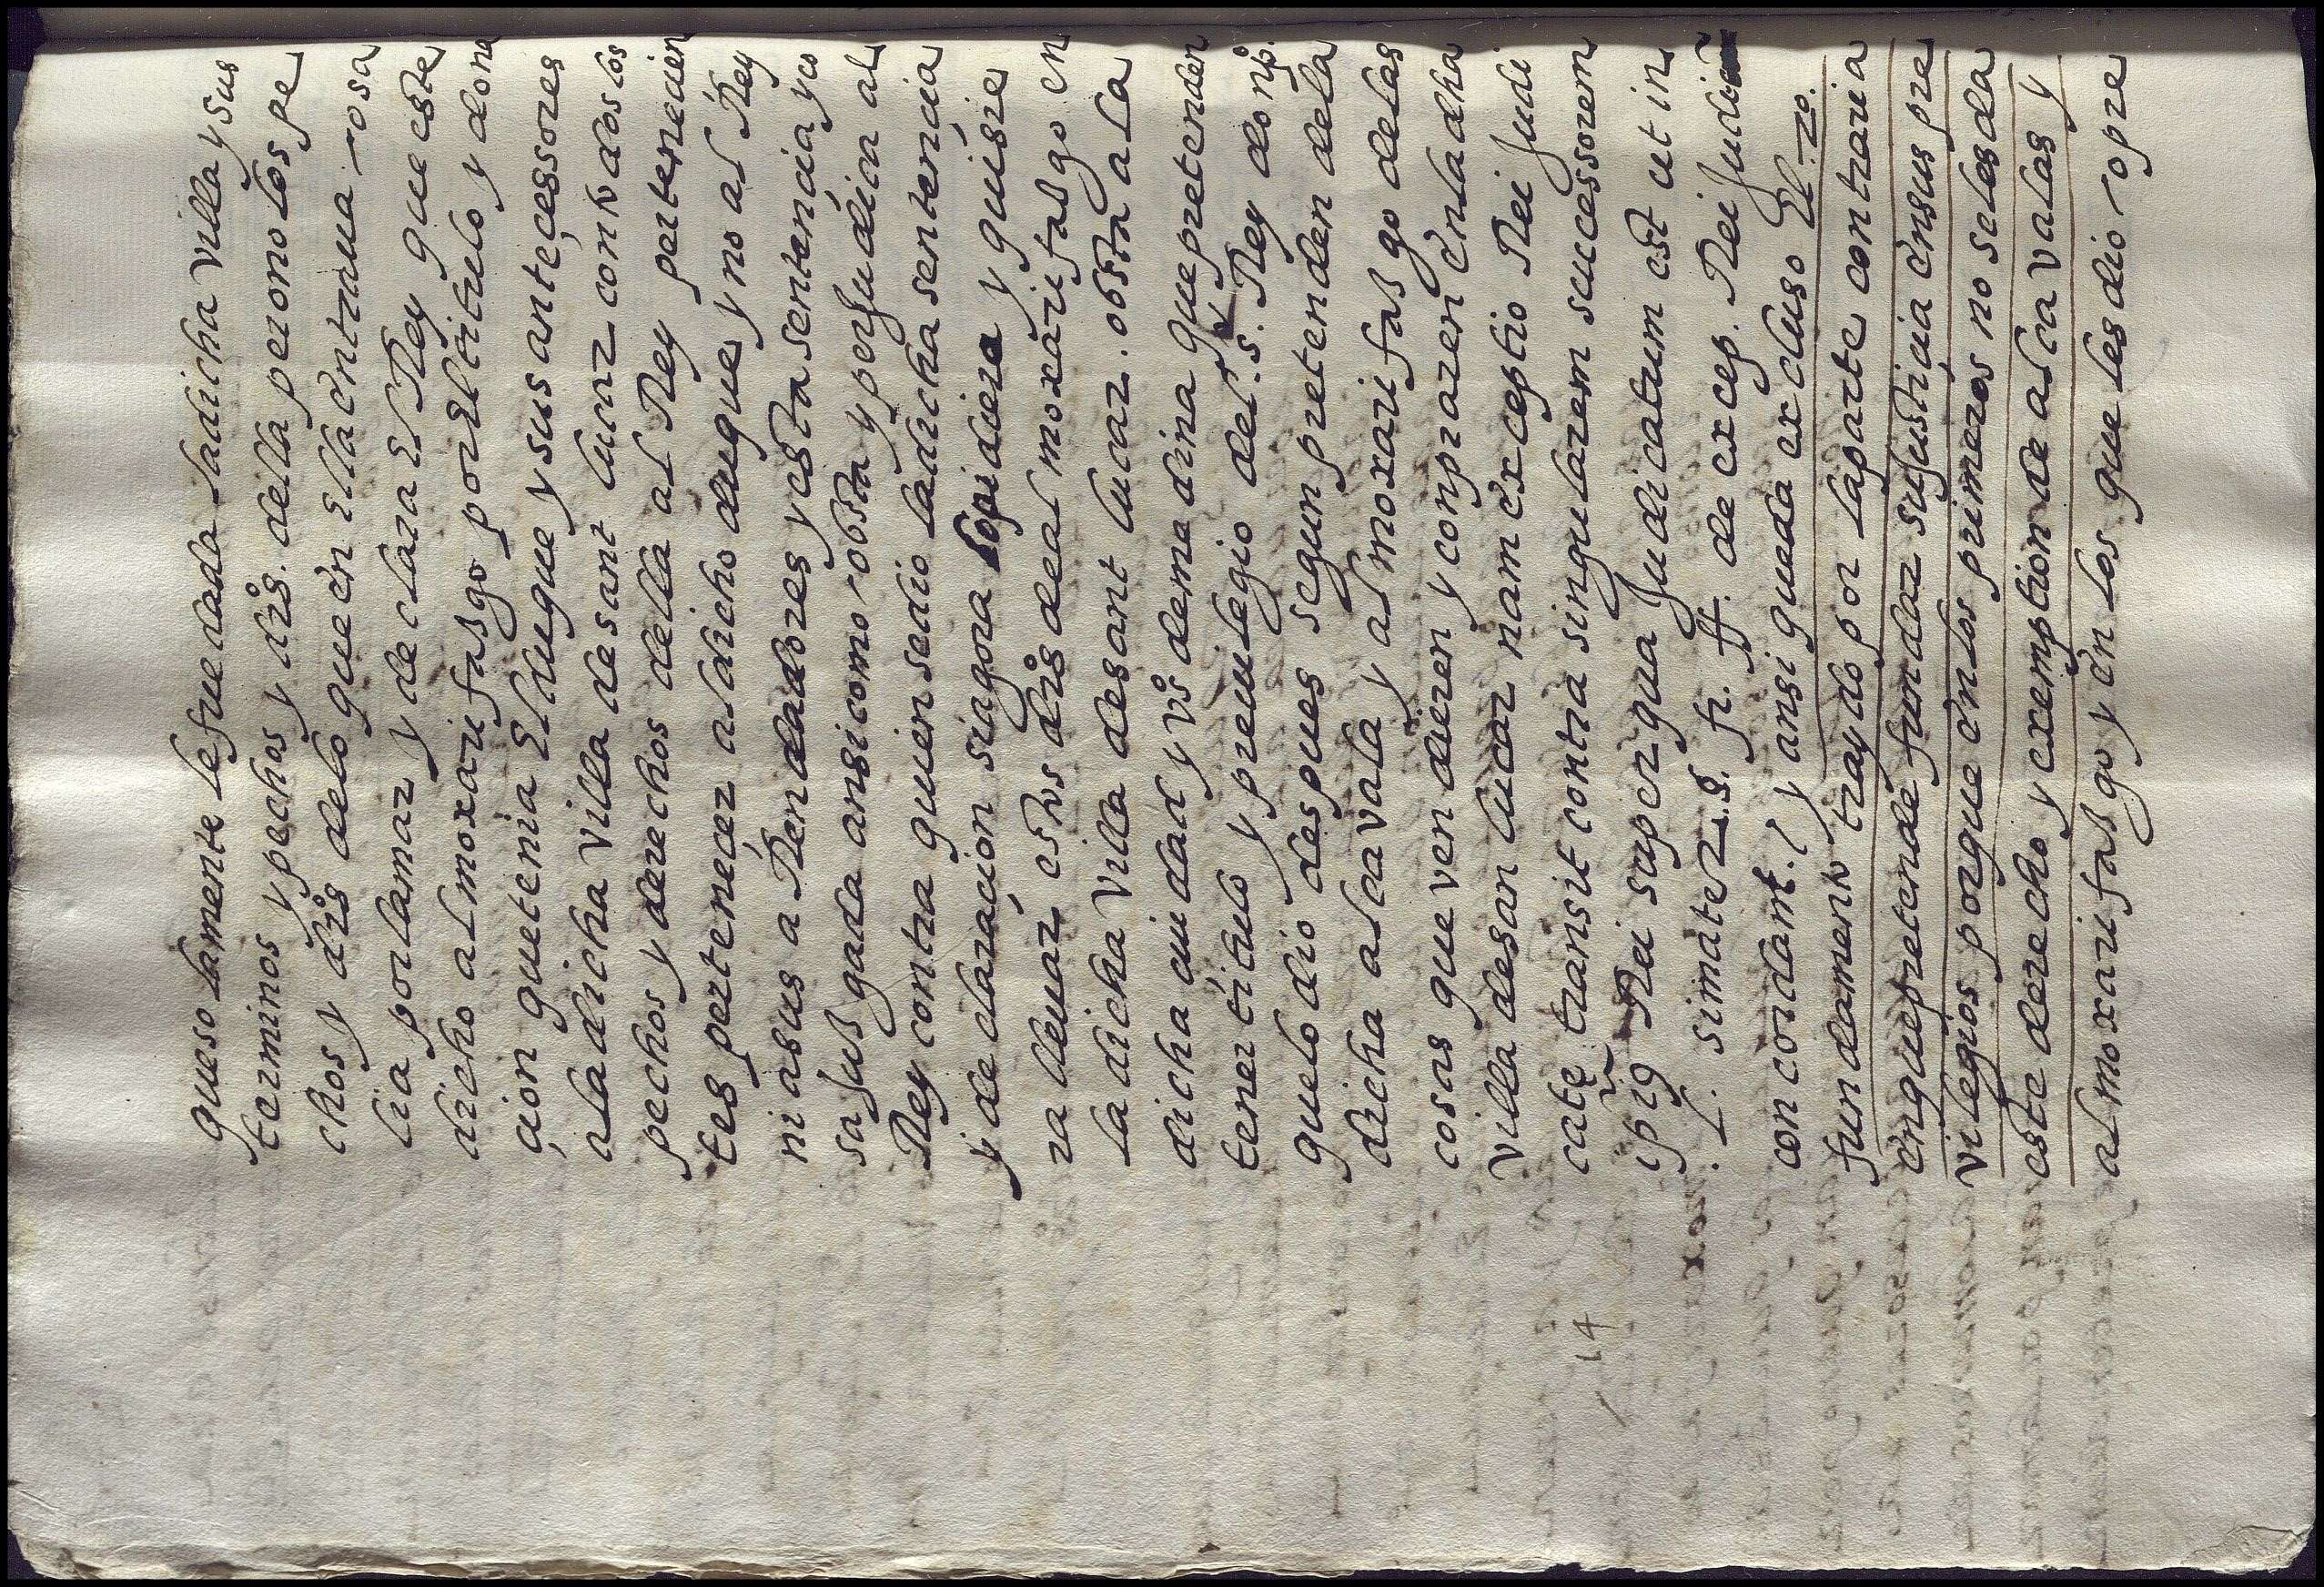 que solamente le fue dada la dicha villa y sus
terminos y pechos y drõs. della pero no los pe
chos y drõs de lo que en Ella entraua o sa
lia por la mar y declara El Rey que este
dicho almoxarifasgo por El titulo y dona
çion que tenia El duque y sus anteçessores
a la dicha villa de sant lucar con todos los
pechos y derechos della al Rey perteneçien
tes perteneçer al dicho duque y no al Rey
ni a sus a Rendadores y esta sentençia y co
sa jusgada ansi como obsta y perjudica al
Rey contra quien se dio la dicha sentençia
y declaraçion si agora lo pidiera y quisie
ra lleuar estos drõs de almoxarifasgo en
la dicha villa de sant lucar. obsta a la
dicha ciudad y vºs de medina que pretenden
tener titulo y preuilegio del. s. Rey don
que lo dio despues segun pretenden de la
dicha alcavala y almoxarifasgo de las
cosas que vendieren y conpraren en la dha
villa de san lucar nam exceptio Rei Judi
cate transit contra singularem successorem
Rei super qua Judicatum est ut in
L. si mater. §. fi. ff. de excep. Rei Judi
concordant. y ansi queda excluso El .ro.
fundamento traydo por la parte contraria
en que pretende fundar su justiçia en sus pre
vilegios porque en los primeros no se les da
este derecho y exemption de alcavalas y
almoxarifasgo y en los que les dio o pre
14